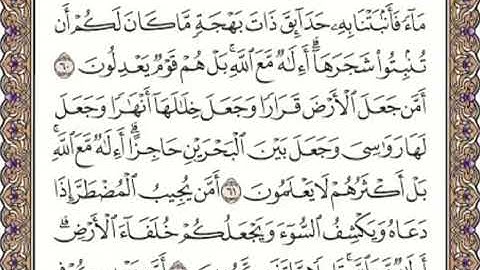 مَآءً فَأَنۢبَتْنَا بِهِۦ حَدَآئِقَ ذَاتَ بَهْجَةٍ مَّا كَانَ لَكُمْ أَن
تُنۢبِتُوا۟ شَجَرَهَآ ۗ أَءِلَٰهٌ مَّعَ ٱللَّهِ ۚ بَلْ هُمْ قَوْمٌ يَعْدِلُونَ ٦٠
أَمَّن جَعَلَ ٱلْأَرْضَ قَرَارًا وَجَعَلَ خِلَٰلَهَآ أَنْهَٰرًا وَجَعَلَ
لَهَا رَوَٰسِىَ وَجَعَلَ بَيْنَ ٱلْبَحْرَيْنِ حَاجِزًا ۗ أَءِلَٰهٌ مَّعَ ٱللَّهِ ۚ
بَلْ أَكْثَرُهُمْ لَا يَعْلَمُونَ ٦١ أَمَّن يُجِيبُ ٱلْمُضْطَرَّ إِذَا
دَعَاهُ وَيَكْشِفُ ٱلسُّوٓءَ وَيَجْعَلُكُمْ خُلَفَآءَ ٱلْأَرْضِ ۗ